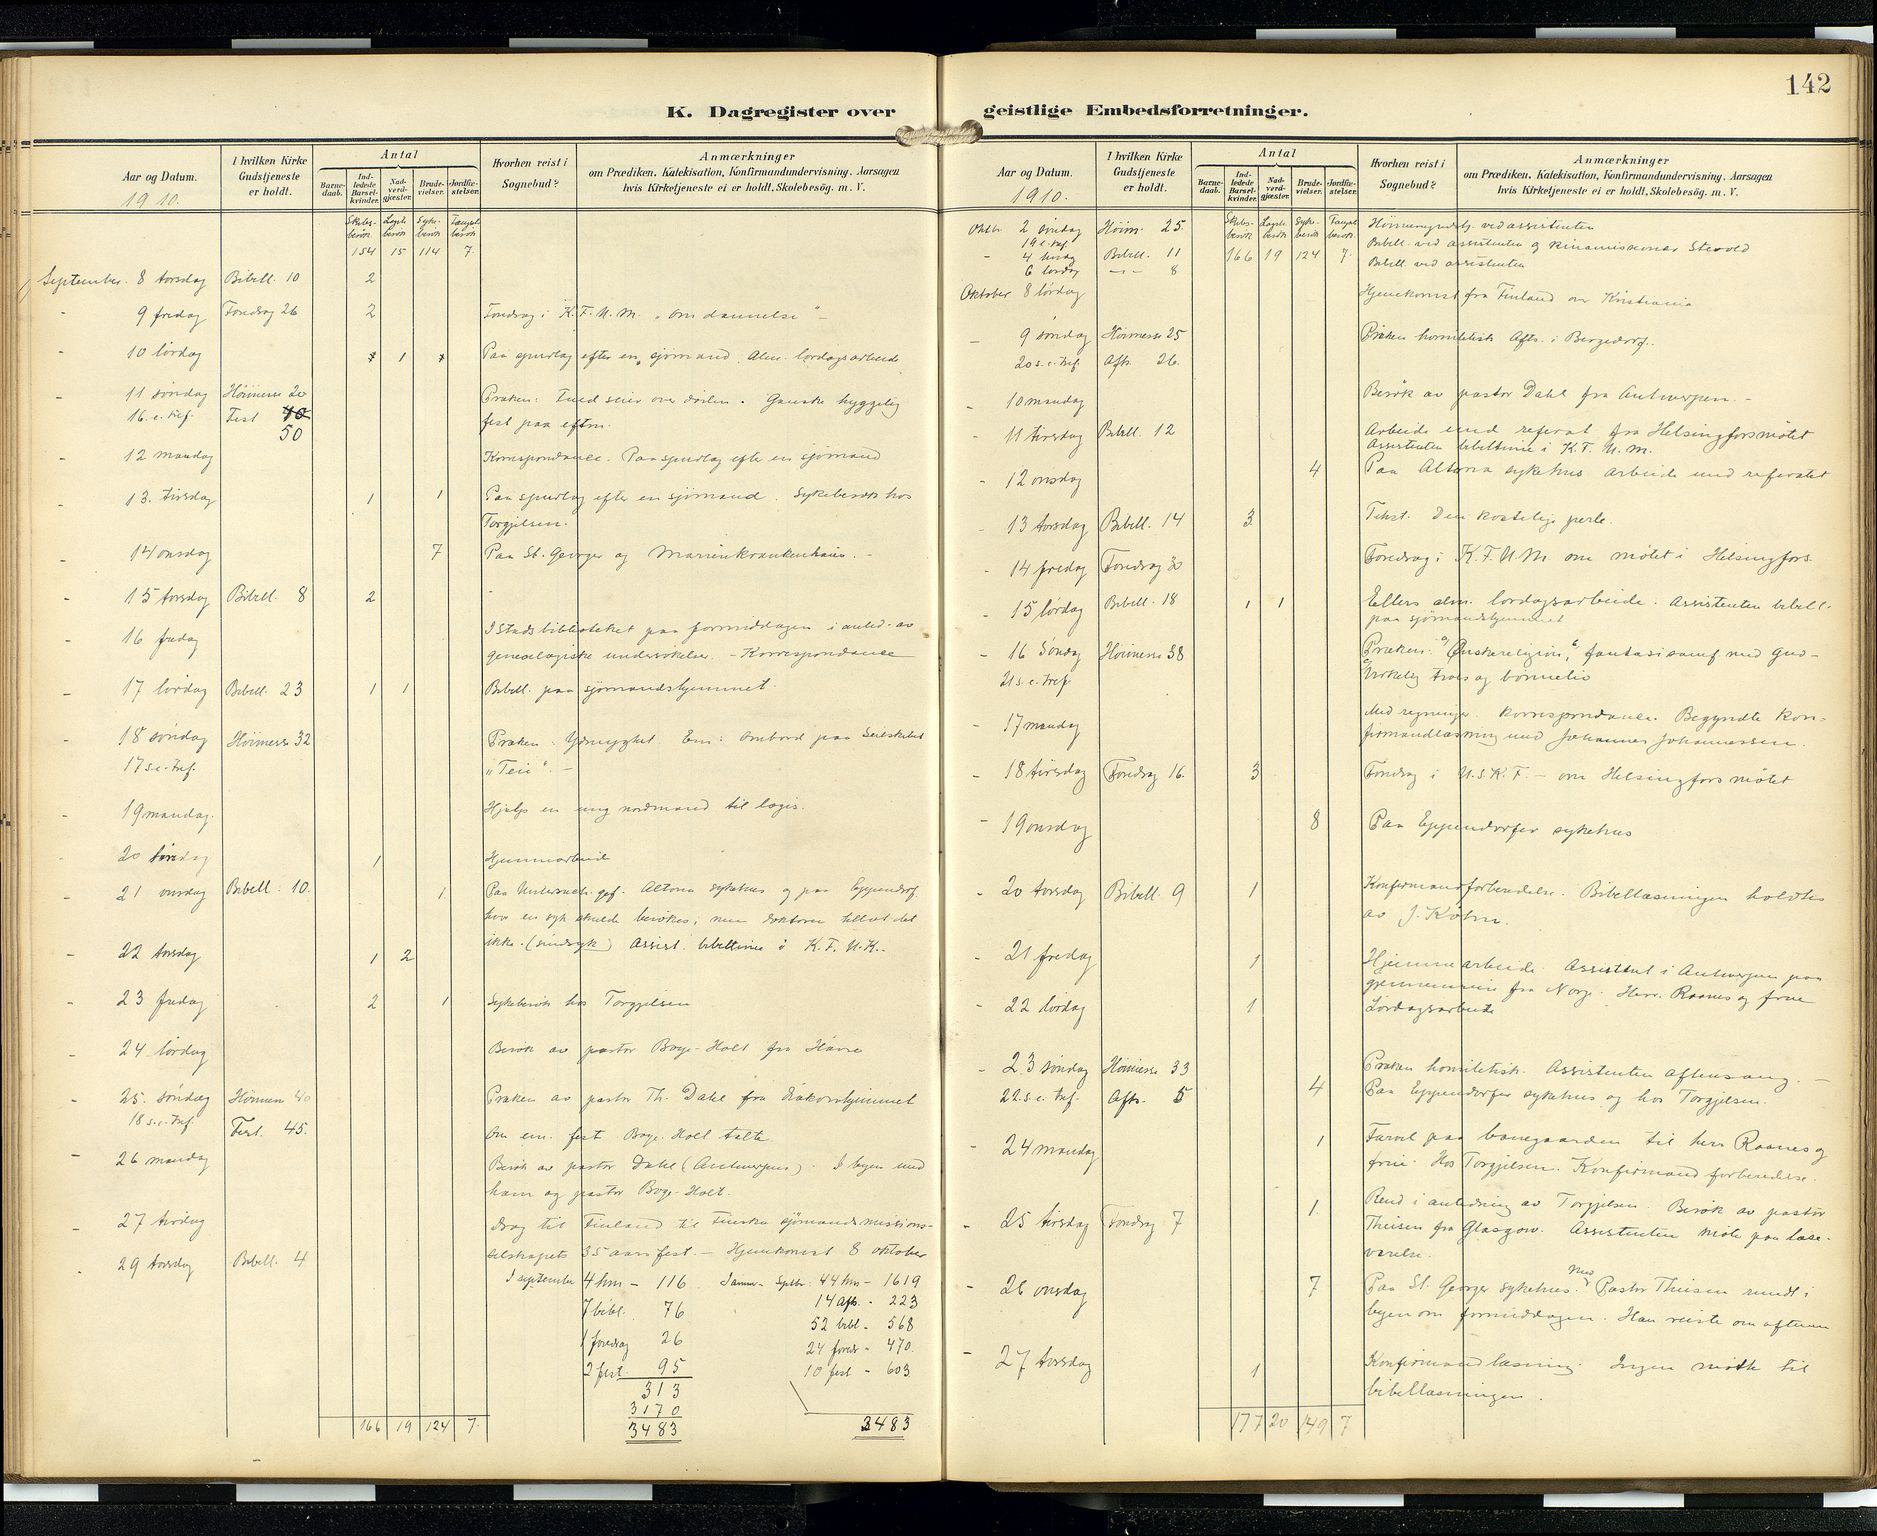 142
K. Dagregister over geistlige Embedsforretninger.
Aar og Datum.
I hvilken Kirke Gudstjeneste er holdt.
Antal
Barnedaab.
Indledede Barselkvinder.
Nadverdgjæster.
Brudevielser.
Jordfæstelser.
Hvorhen reist i Sognebud?
Anmærkninger
om Prædiken, Katekisation, Konfirmandundervisning, Aarsagen
hvis Kirketjeneste ei er holdt, Skolebesøg. m. V.
1910.
Skibsbesøk Logisbesøk Sykebesøk
154 15 114 7
September. 8 torsdag Bibell. 10 2
- 9 fredag Foredrag 26 2 Foredrag i K.F.U.M. "om dannelse" -
- 10 lørdag 1 Paa spurlag efter en sjømand. Alm. lørdagsarbeide
- 11 søndag Høimesse 20 Præken: Fred seier over døden. Ganske hyggelig
16. e. tref. Fest 40 50 fest paa eftm.
12 mandag Korrespondance. Paa spurlag efter en sjømand
- 13. tirsdag 1 1 Paa spurlag efter en sjømand. Sykebesøk hos
Torgjelsen.
- 14 onsdag 7 Paa St. Georger og Marienkrankenhaus. -
- 15 torsdag Bibell. 8 2
- 16 fredag I Stadsbiblioteket paa formiddagen i anled. av
genealogiske undersøkelser. - Korrespondance
- 17 lørdag Bibell. 23 1 1 Bibell. paa sjømandshjemmet.
- 18 søndag Høimesse 32 Præken: Ydmyghet. Em: Ombord paa Seilskibet
17 s. e. tref. "Teie". -
- 19 mandag. Hjalp en ung nordmand til logis.
- 20 1 Hjemmearbeide
- 21 onsdag Bibell. 10. 1 Paa Untersuch. gef. Altona sykehus og paa Eppendorf.
hvor en syk skulde besøkes; men doktoren tillot det
ikke. (sindsyk) Assist. bibeltime i K.F.U.K. -
- 22 torsdag 1 2
- 23 fredag 2 1 Sykebesøk hos Torgjelsen
- 24 lørdag Besøk av pastor Boge-Holt fra Havre
- 25. søndag Høimesse 40 Præken av pastor Th. Dahl fra diakonhjemmet
18 s. e. tref. Fest. 45. Om em. fest. Boge-Holt talte
- 26 mandag Besøk av pastor Dahl (Antwerpen). I byen med
ham og pastor Boge-Holt.
- 27 tirsdag drog til Finland til Finska sjømandsmissions-
selskapets 35 aars fest. - Hjemkomst 8 oktober
- 29 torsdag Bibell. 4
I september 4 hm - 116 Januar - Septbr. 44 hm - 1619
7 bibl. 76 14 afts. - 223
1 foredrag 26 52 bibl - 568
2 fest 95 24 foredr - 470.
313 10 fest - 603.
3170
3483 3483
166 19 124 7.
Aar og Datum.
I hvilken Kirke Gudstjeneste er holdt.
Antal
Barnedaab.
Indledede Barselkvinder.
Nadverdgjæster.
Brudevielser.
Jordfæstelser.
Hvorhen reist i Sognebud?
Anmærkninger
om Prædiken, Katekisation, Konfirmandundervisning, Aarsagen
hvis Kirketjeneste ei er holdt, Skolebesøg. m. V.
1910.
Skibsbesøk Logisbesøk Sykebesøk
166 19 124 7.
Oktbr. 2 søndag Høim. 25 Høimessegudstj. ved assistenten
19 e. tref.
- 4 tirsdag Bibell. 11 Bibell. ved assistenten og kinamissionær Stevold
6 lørdag -"- 8 Bibell. ved assistenten
Oktober 8 lørdag Hjemkomst fra Finland over Kristiania
- 9 søndag Høimesse 25 Præken homiletisk. Afts. i Bergedorf.
20 s. e. tref. Afts. 26.
- 10 mandag Besøk av pastor Dahl fra Antwerpen. -
- 11 tirsdag Bibell. 12 Arbeide med referat fra Helsingforsmøtet
Assistenten bibeltime i K.F.U.M.
- 12 onsdag 4 Paa Altona sykehus arbeide med referatet
- 13 torsdag Bibell. 14 3. Tekst. Den kostelige perle.
- 14 fredag Foredrag 30 Foredrag i K.F.U.M. om møtet i Helsingfors.
- 15 lørdag Bibell. 18 1 1 Ellers alm. lørdagsarbeide. Assistenten bibell.
paa sjømandshjemmet
- 16 søndag Høimesse 38 Præken: Ønskereligion, fantasisamf. med Gud -
21 s. e. tref. Virkelig tros og bønneliv
- 17 mandag Med regninger. korrespondance. Begyndte kon-
firmandlæsning med Johannes Johannessen.
- 18 tirsdag Foredrag 16. 3 Foredrag i U.S.K.F. - om Helsingforsmøtet
- 19 onsdag 8 Paa Eppendorfer sykehus
- 20 torsdag Bibell. 9 1 Konfirmandforberedelse. Bibellæsningen holdtes
av J. Køhn.
- 21 fredag 1 Hjemmearbeide. Assistent i Antwerpen paa
gjennemreise fra Norge. Herr. Raanes og frue
- 22 lørdag 1 Lørdagsarbeide
- 23 søndag Høimesse 33 Præken homiletisk. Assistenten aftensang. -
22. s. e. tref. Afts. 5 4 Paa Eppendorfer sykehus og hos Torgjelsen.
- 24 mandag 1 Farvel paa banegaarden til herr Raanes og
frue. Hos Torgjelsen. Konfirmandforberedelse.
- 25 tirsdag Foredrag 7 1. Rend i anledning av Torgjelsen. Besøk av pastor
Theisen fra Glasgow. Assistenten møte paa læse-
værelse.
- 26 onsdag 7 Paa St. Georger sykehus. Med Pastor Theisen rundt i
byen om formiddagen. Han reiste om aftenen
- 27 torsdag 1 Konfirmandlæsning. Ingen møtte til
bibellæsningen.
177 20 149 7